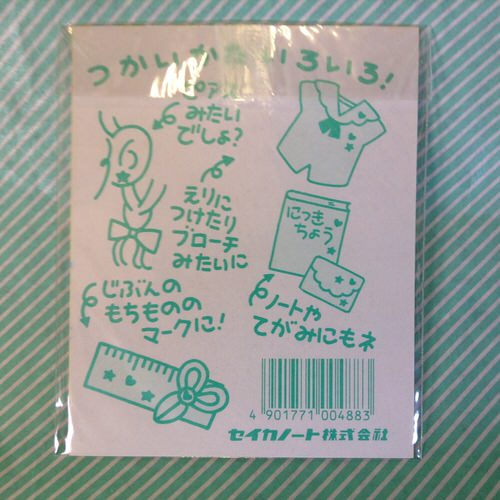 つかいかたいろいろ!
ピアス
みたい
でしょ?
えりに
つけたり
ブローチ
みたいに
にっき
ちょう
じぶんの
もちものの
マークに!
ノートや
てがみにもネ
4 901771 004883
セイカノート株式会社